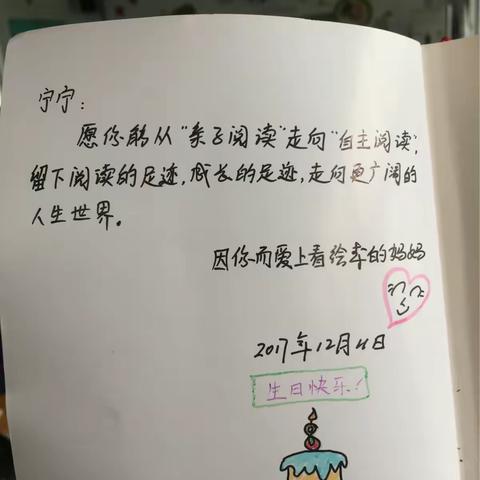 宁宁:
愿你能从“亲子阅读”走向“自主阅读”,
留下阅读的足迹,成长的足迹,走向更广阔的
人生世界。
因你而爱上看绘本的妈妈
2017年12月4日
生日快乐!